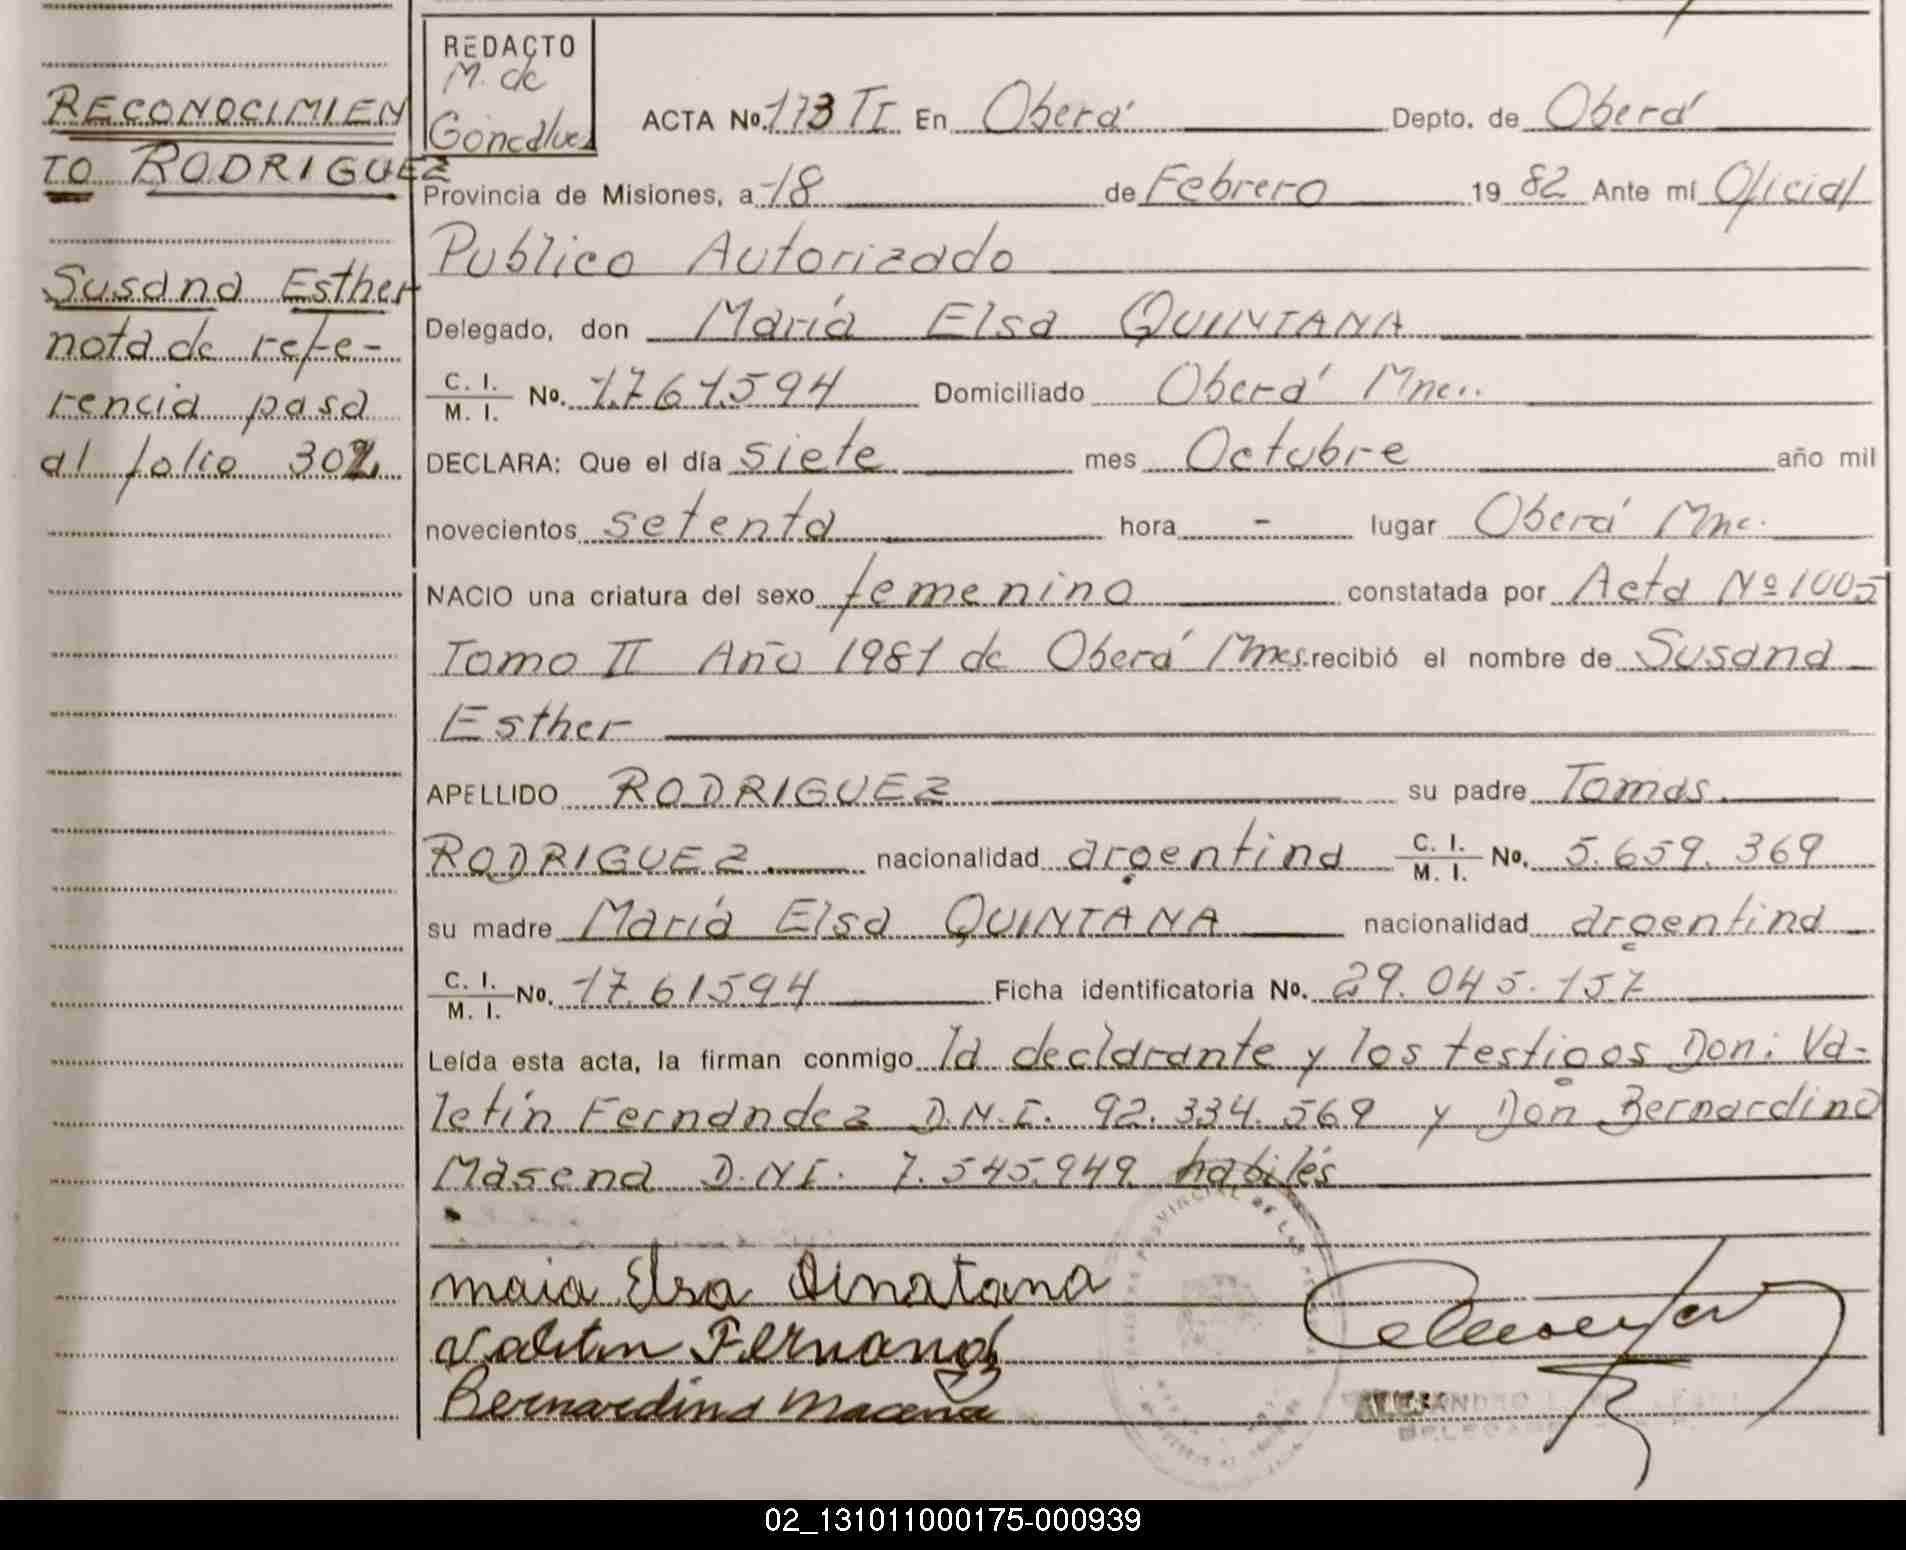 RECONOCIMIEN
TO RODRIGUEZ
Susana Esther
nota de refe-
rencia pasa
al folio 302
REDACTO
M. de
Goncalves
ACTA No. 173 TI En Oberá Depto. de Oberá
Provincia de Misiones, a 18 de Febrero 19 82 Ante mí Oficial
Publico Autorizado
Delegado, don María Elsa QUINTANA
C. I. / M. I. No. 1.761.594 Domiciliado Oberá Mnes.
DECLARA: Que el día siete mes Octubre año mil
novecientos setenta hora - lugar Oberá Mnes.
NACIO una criatura del sexo femenino constatada por Acta Nº 1005
Tomo II Año 1981 de Oberá Mnes. recibió el nombre de Susana
Esther
APELLIDO RODRIGUEZ su padre Tomas
RODRIGUEZ nacionalidad argentina C. I. / M. I. No. 5.659.369
su madre María Elsa QUINTANA nacionalidad argentina
C. I. / M. I. No. 17.61594 Ficha identificatoria No. 29.045.157
Leída esta acta, la firman conmigo la declarante y los testigos Don: Va-
letín Fernandez D.N.I. 92.334.569 y Don Bernardino
Masena D.N.I. 7.545.949 habiles
maia Elsa Qinatana
Valetin Fernand
Bernardino Macena
02_131011000175-000939